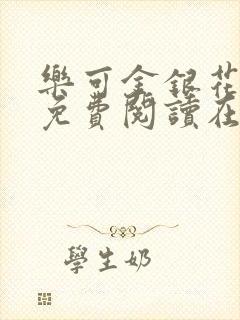 樂可金銀花
免費閱讀在
學生奶